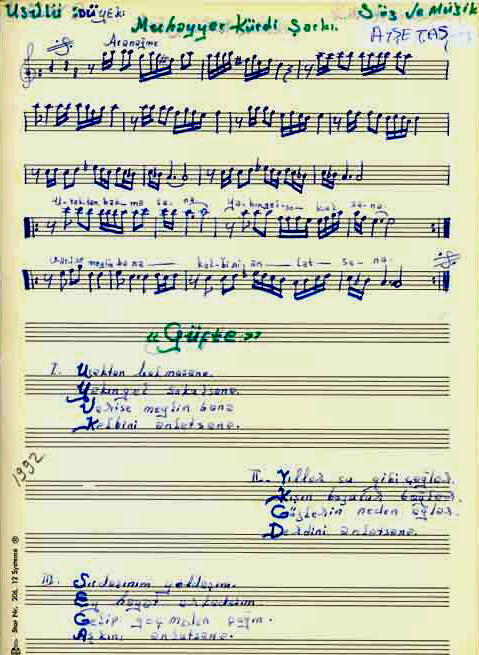 Usûlü : DÜYEK
Söz ve Müzik
Muhayyer Kürdi Şarkı.
AYŞE TAŞ
Aranağme
U-zak-tan bak-ma sa-na
Ya-kın gel so- kul sa-na.
Varise meylin ba na kal-bini an lat sa-na.
«Güfte»
I. Uzaktan bakmasana.
Yakıngel sokulsana.
Varise meylin bana
Kalbini anlatsana.
1992
II. Yıllar su gibi çağlar.
Kışın bozulur bağlar.
Gözlerin neden ağlar.
Derdini anlatsana.
III. Sırdaşınım yoldaşım.
Ey hayat arkadaşım.
Gelip geçmeden çağın.
Aşkını anlatsana.
Star Nr. 206, 12 Systeme